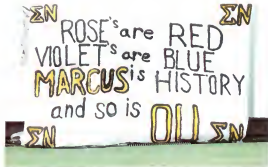 ΣN ΣN
ROSE's are RED
VIOLET's are BLUE
MARCUS is HISTORY
and so is OU
ΣN ΣN